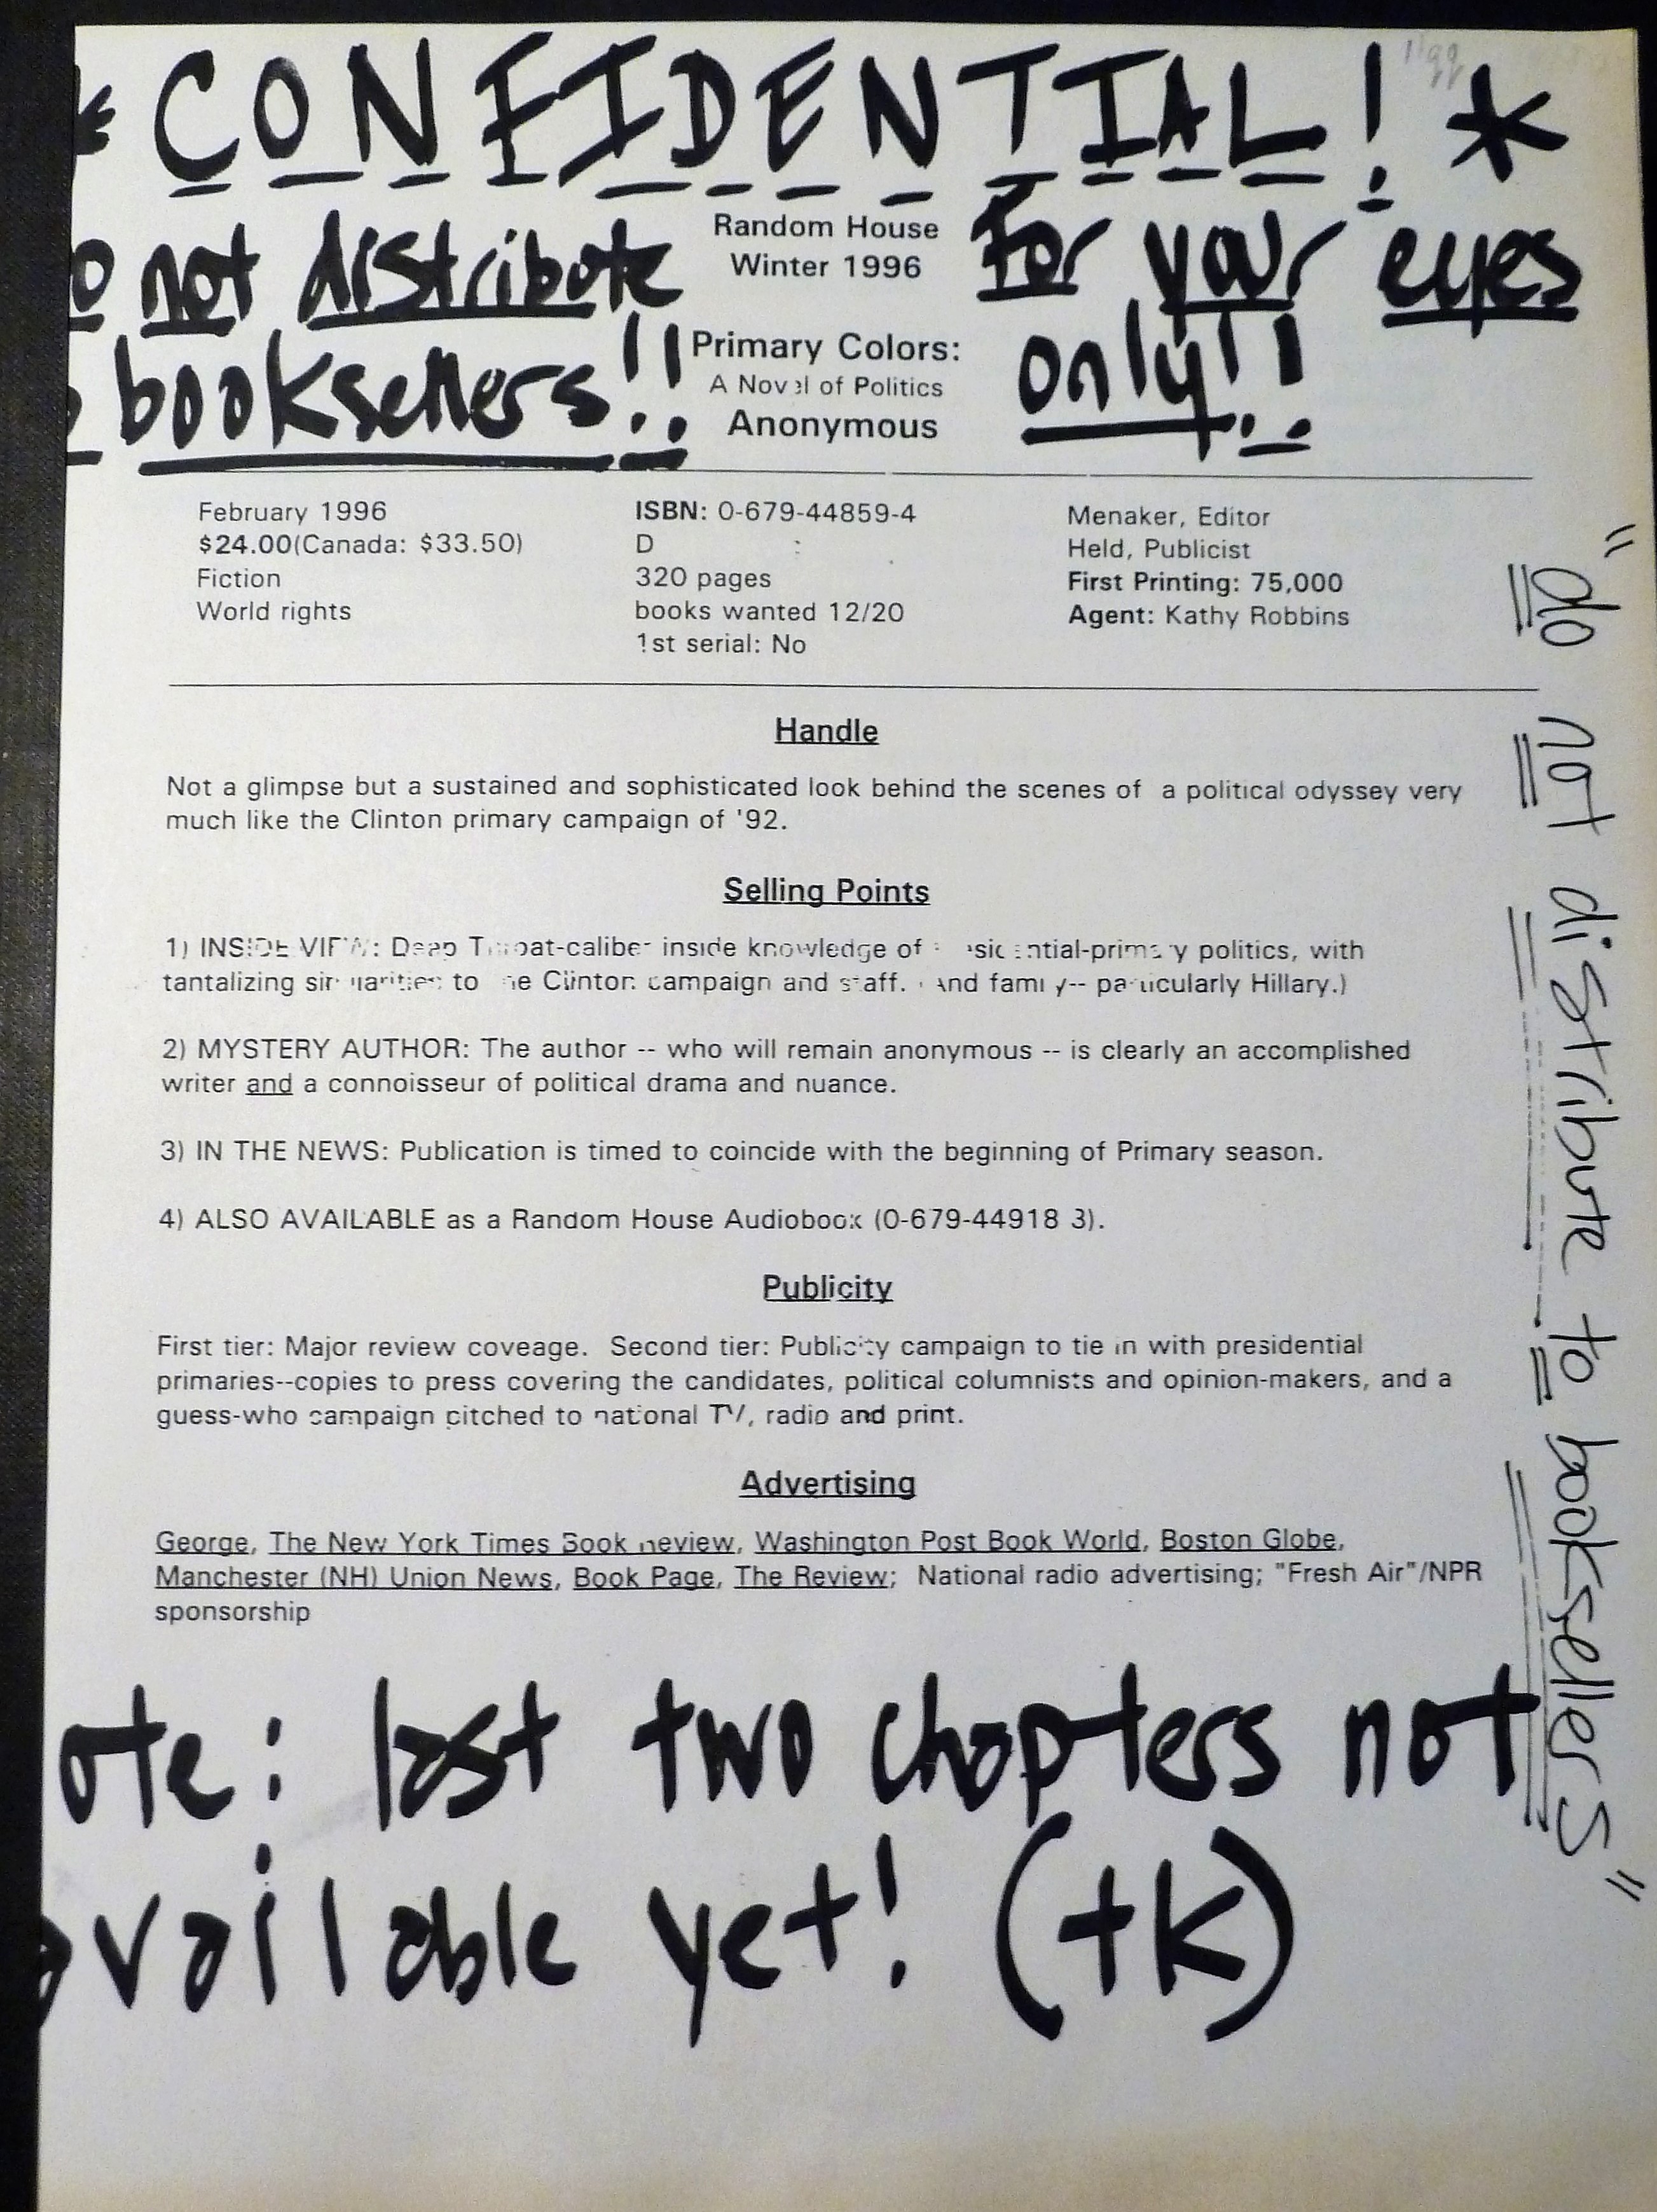 * CONFIDENTIAL! *
o not distribute
booksellers!!
Random House
Winter 1996
Primary Colors:
A Novel of Politics
Anonymous
For your eyes
only!!
February 1996
$24.00(Canada: $33.50)
Fiction
World rights
ISBN: 0-679-44859-4
D
320 pages
books wanted 12/20
1st serial: No
Menaker, Editor
Held, Publicist
First Printing: 75,000
Agent: Kathy Robbins
Handle
Not a glimpse but a sustained and sophisticated look behind the scenes of a political odyssey very
much like the Clinton primary campaign of '92.
Selling Points
1) INSIDE VIEW: Deep Throat-caliber inside knowledge of presidential-primary politics, with
tantalizing similarities to the Clinton campaign and staff. (And family-- particularly Hillary.)
2) MYSTERY AUTHOR: The author -- who will remain anonymous -- is clearly an accomplished
writer and a connoisseur of political drama and nuance.
3) IN THE NEWS: Publication is timed to coincide with the beginning of Primary season.
4) ALSO AVAILABLE as a Random House Audiobook (0-679-44918 3).
Publicity
First tier: Major review coveage. Second tier: Publicity campaign to tie in with presidential
primaries--copies to press covering the candidates, political columnists and opinion-makers, and a
guess-who campaign pitched to national TV, radio and print.
Advertising
George, The New York Times Book Review, Washington Post Book World, Boston Globe,
Manchester (NH) Union News, Book Page, The Review; National radio advertising; "Fresh Air"/NPR
sponsorship
ote: last two chapters not
available yet! (tk)
"do not distribute to booksellers"